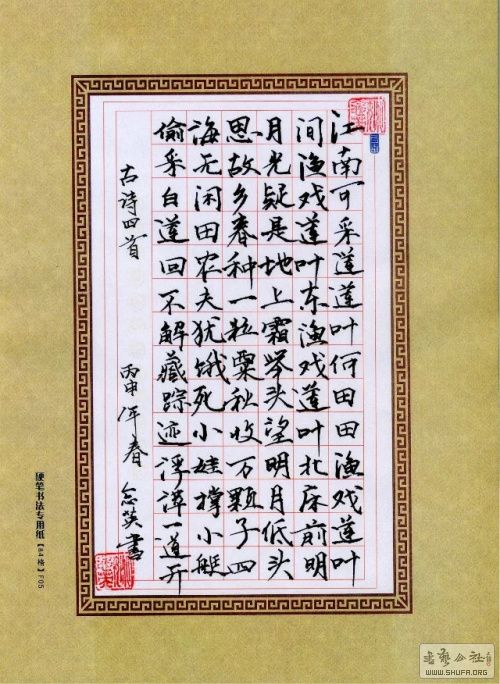 江南可采莲莲叶何田田渔戏莲叶
间渔戏莲叶东渔戏莲叶北床前明
月光疑是地上霜举头望明月低头
思故乡春种一粒粟秋收万颗子四
海无闲田农夫犹饿死小娃撑小艇
偷采白莲回不解藏踪迹浮萍一道开
古诗四首 丙申年春 念英书
硬笔书法专用纸【84格】F05
书艺公社
WWW.SHUFA.ORG